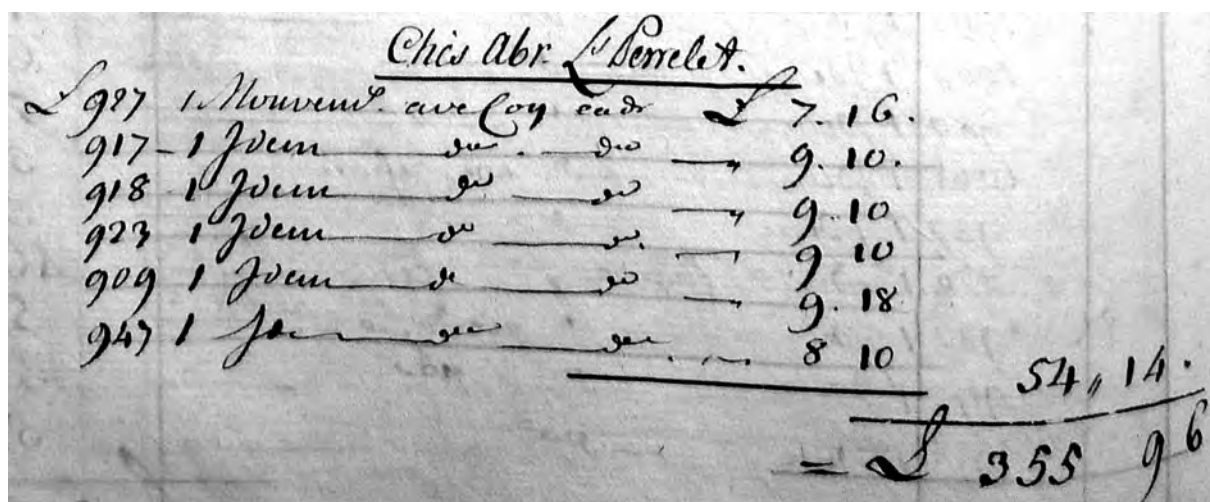 Chès Abr. Ls Perrelet.
£ 927 1 Mouvemt. avec Coq cadr £ 7. 16.
917 - 1 Idem do. do — " 9. 10.
918 1 Idem do do — " 9. 10
923 1 Idem do do. — " 9 10
909 1 Idem do do — " 9. 18
947 1 Idem do do. — " 8 10
54 " 14.
= £ 355 9 6